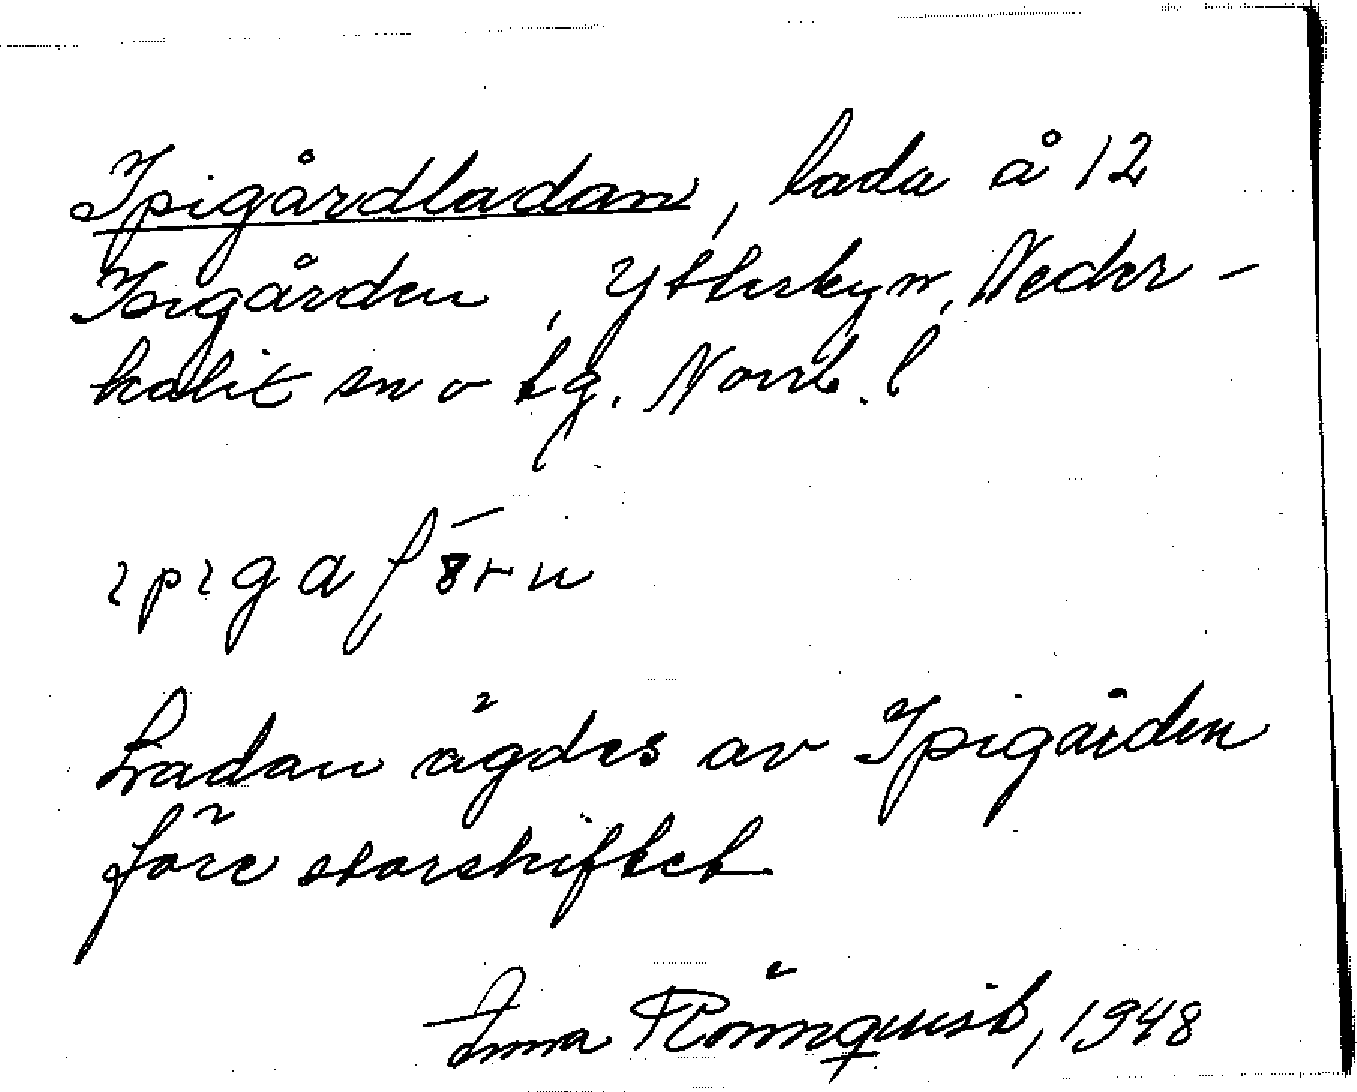 Ipigårdladan, lada å 12
Isigården, Ytterbyn, Neder-
kalix sn o tg. Norrb. l
ɩpɩgaʃɵ̄rn
Ladan ägdes av Ipigården
före storskiftet
Anna Rönnquist, 1948